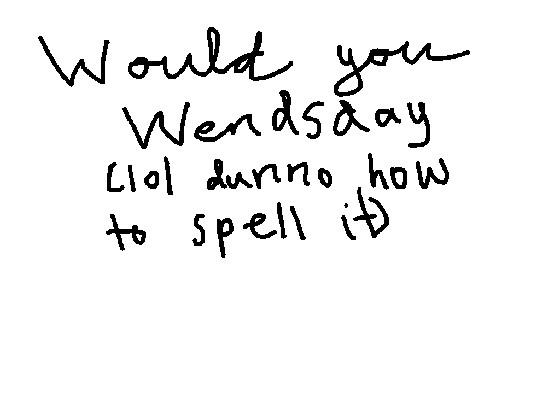 Would you
Wendsday
(lol dunno how
to spell it)